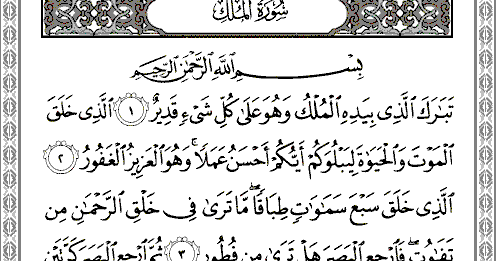 سُورَةُ الْمُلْكِ
بِسْمِ اللَّهِ الرَّحْمَٰنِ الرَّحِيمِ
تَبَارَكَ الَّذِي بِيَدِهِ الْمُلْكُ وَهُوَ عَلَىٰ كُلِّ شَيْءٍ قَدِيرٌ ١ الَّذِي خَلَقَ
الْمَوْتَ وَالْحَيَوٰةَ لِيَبْلُوَكُمْ أَيُّكُمْ أَحْسَنُ عَمَلًا ۚ وَهُوَ الْعَزِيزُ الْغَفُورُ ٢
الَّذِي خَلَقَ سَبْعَ سَمَٰوَٰتٍ طِبَاقًا ۖ مَّا تَرَىٰ فِي خَلْقِ الرَّحْمَٰنِ مِن
تَفَٰوُتٍ ۖ فَارْجِعِ الْبَصَرَ هَلْ تَرَىٰ مِن فُطُورٍ ٣ ثُمَّ ارْجِعِ الْبَصَرَ كَرَّتَيْنِ